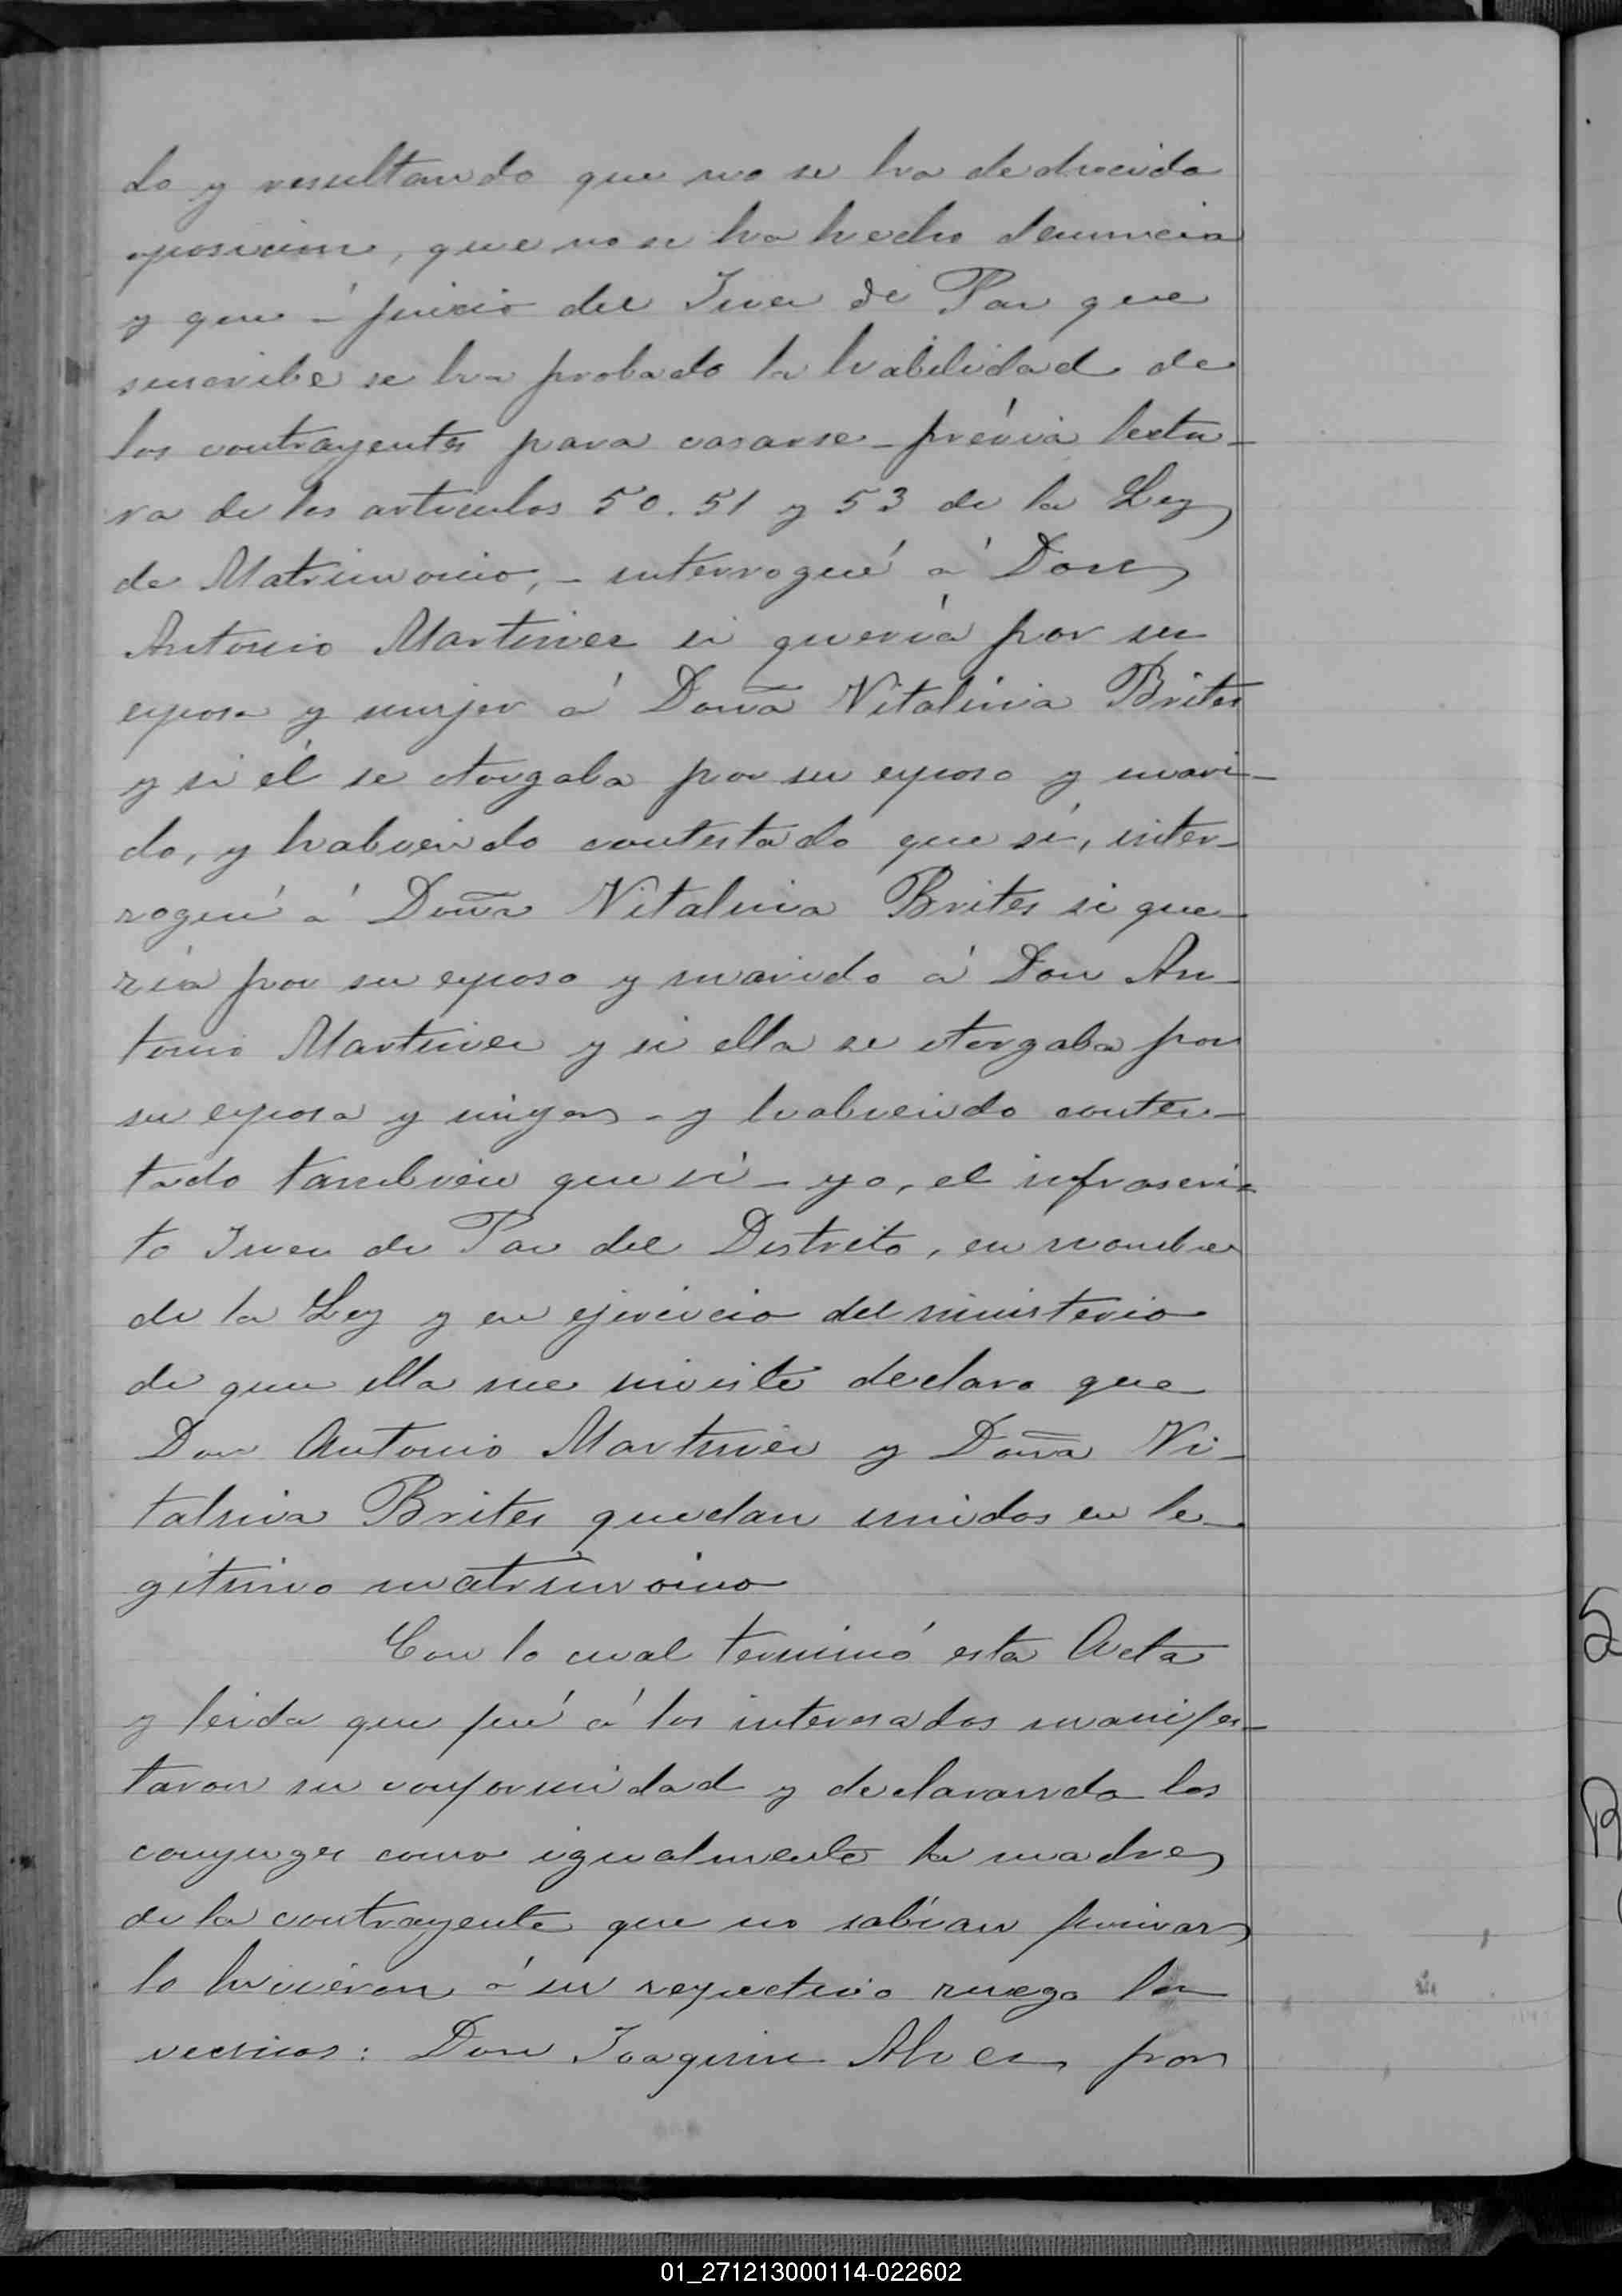 do y resultando que no se ha deducido
oposicion, que no se ha hecho denuncia
y que á juicio del Juez de Paz que
suscribe se ha probado la habilidad de
los contrayentes para casarse – prévia lectu-
ra de los articulos 50. 51 y 53 de la Ley
de Matrimonio, – interrogué á Don
Antonio Martinez si quería por su
esposa y mujer á Doña Vitalina Brites
y si él se otorgaba por su esposo y mari-
do, y habiendo contestado que sí, inter-
rogué á Doña Vitalina Brites si que-
ría por su esposo y marido á Don An-
tonio Martinez y si ella se otorgaba por
su esposa y mujer – y habiendo contes-
tado tambien que sí – yo, el infrascri-
to Juez de Paz del Distrito, en nombre
de la Ley y en ejercicio del ministerio
de que ella me inviste declaro que
Don Antonio Martinez y Doña Vi-
talina Brites quedan unidos en le-
gitimo matrimonio
Con lo cual terminó esta Acta
y leida que fué á los interesados manifes-
taron su conformidad y declarando los
conyuges como igualmente la madre
de la contrayente que no sabían firmar
lo hicieron á su respectivo ruego los
vecinos: Don Joaquin Alves por
01_271213000114-022602